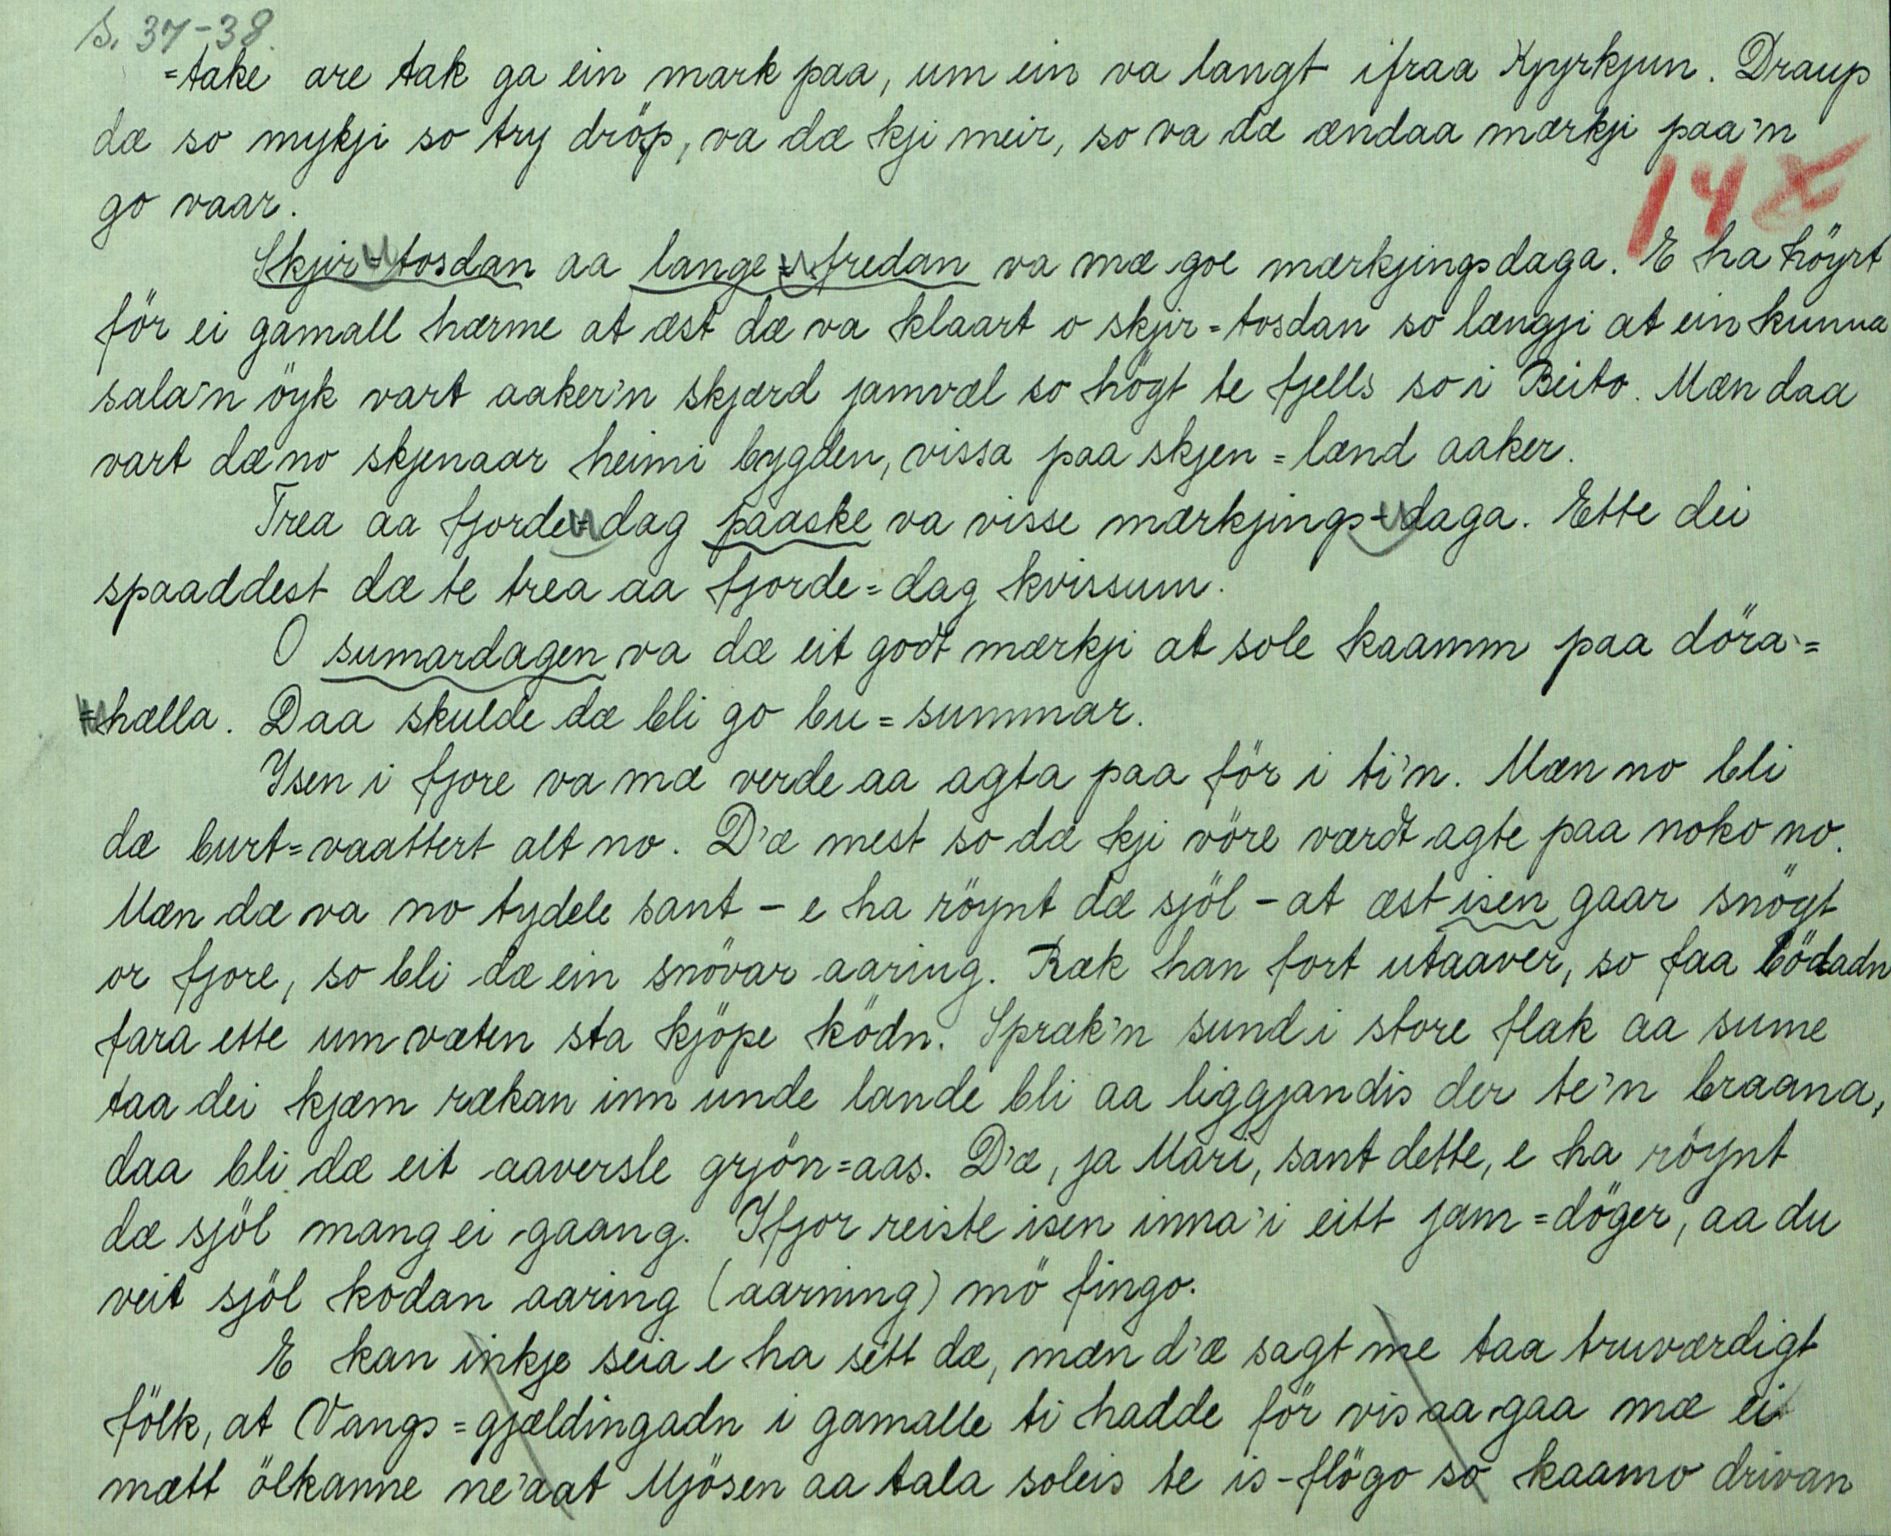 s. 37-38.
=take are tak ga ein mark paa, um ein va langt ifraa Kjyrkjun. Draup
dæ so mykji so try dröp, va dæ kji meir, so va dæ ændaa mærkji paa'n
go vaar.
14 x
Skjir=tosdan aa lange=fredan va mæ goe mærkjingsdaga. E ha höyrt
för ei gamall hærme at æst dæ va klaart o skjir=tosdan so længji at ein kunna
sala'n öyk vart aaker'n skjærd jamvæl so högt te fjells so i Beito. Mæn daa
vart dæ no skjenaar heimi bygden, vissa paa skjen=lænd aaker.
Trea aa fjorde=dag paaske va visse mærkjings-daga. Ette dei
spaaddest dæ te trea aa fjorde=dag kvissum.
O sumardagen va dæ eit godt mærkji at sole kaamm paa döra'=
=hælla. Daa skulde dæ bli go bu=summar.
Isen i fjore va mæ verde aa agta paa för i ti'n. Mæn no bli
dæ burt=vaattert alt no. D'æ mest so dæ kji vöre værdt agte paa noko no.
Mæn dæ va no tydele sant - e ha röynt dæ sjöl - at æst isen gaar snögt
or fjore, so bli dæ ein snövar aaring. Ræk han fort utaaver, so faa bödadn
fara ette um væten sta kjöpe ködn. Spræk'n sund i store flak aa sume
taa dei kjæm rækan inn unde lande bli aa liggjandis der te'n braana,
daa bli dæ eit aaversle grjön=aas. D'æ, ja Mari, sant dette, e ha röynt
dæ sjöl mang ei gaang. Ifjor reiste isen inna'i eitt jam=döger, aa du
veit sjöl kodan aaring (aarning) mö fingo.
E kan inkje seia e ha sett dæ, mæn d'æ sagt me taa truværdigt
fölk, at Vangs=gjældingadn i gamalle ti hadde för vis aa gaa mæ ei
mætt ölkanne ne'aat Mjösen aa tala soleis te is-flögo so kaamo drivan